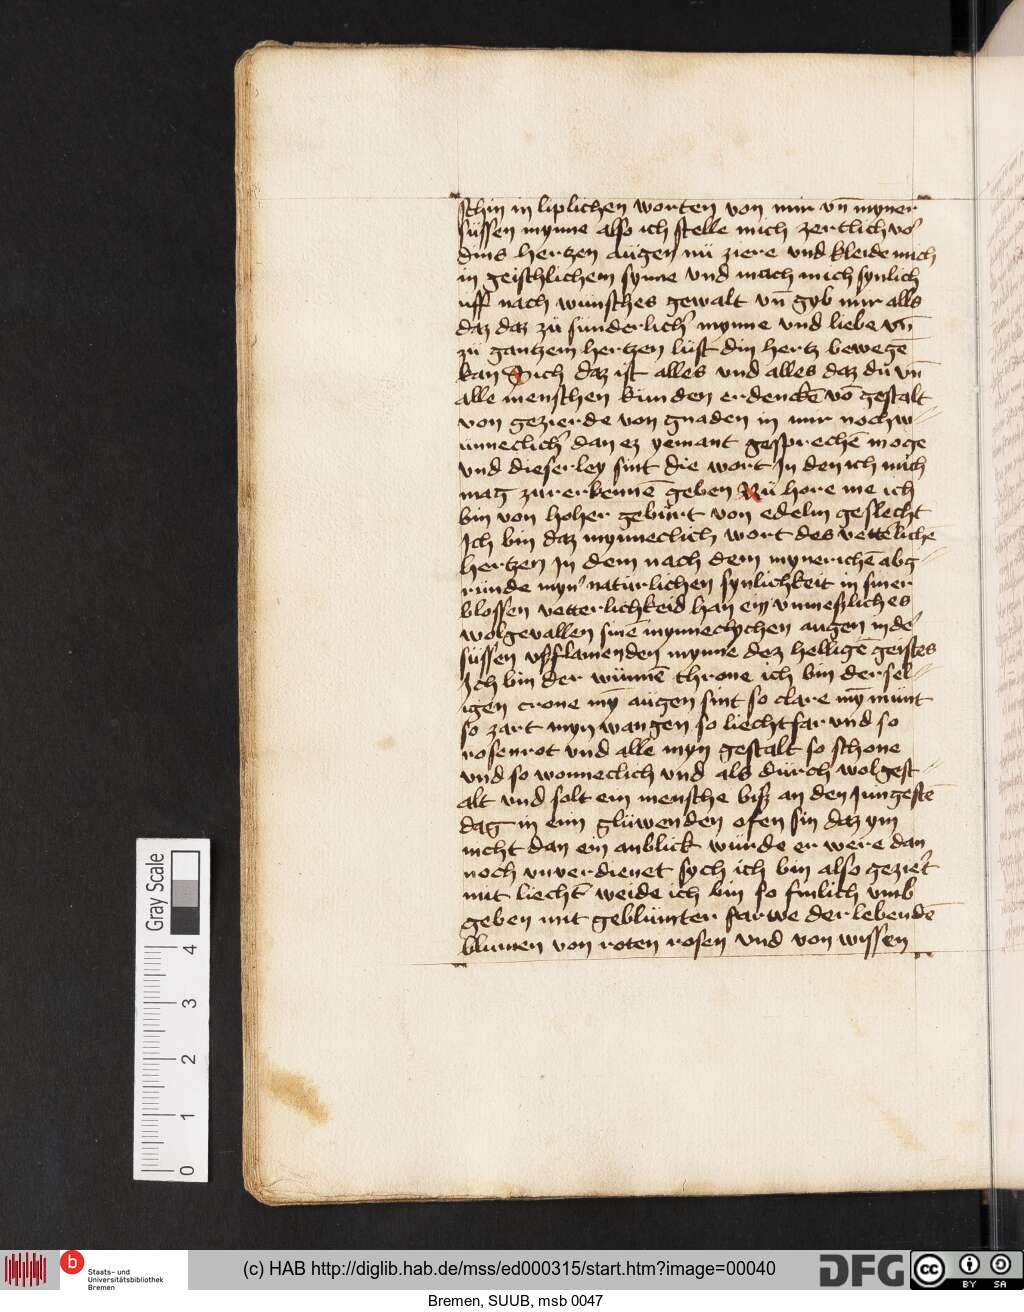 schin in liplichen worten von mir vn̄ myner
süssen mynne also ich stelle mich zertlich vo᷑
dins hertzen aůgen nü ziere vnd kleide mich
in geischlichem synne vnd mach mich synlich
uff nach wunsches gewalt vn̄ gyb mir alls
daz daz zü sunderlich᷑ mynne vnd liebe vn̄
zü gantzem hertzen lüst din hertz bewegē
kan Sich daz ist alles vnd alles daz dü vn̄
alle menschen kunden erdenckē vō gestalt
von gezierde von gnaden in mir noch w⸗
ünneclich᷑ dan ez yemant gesprechē moge
vnd dieserley sint die wort In den ich mich
mag zür erkennē geben Nü hore me ich
bin von hoher gebürt von edelm geslecht
Ich bin daz mynneclich wort des vetterlichē
hertzen In dem nach dem mynerichē abg⸗
ründe myn᷑ natürlichen synlichkeit in siner
blossen vetterlichkeid han ein vnmeßliches
wolgevallen sinē mynneclychen augen in de᷑
süssen vfflamenden mynne dez helligē geistes
Ich bin der wünnē throne ich bin der sel⸗
igen crone mȳ aügen sint so clare mȳ münt
so zart myn wangen so liechtfar vnd so
rosenrot vnd alle myn gestalt so schone
vnd so wonneclich vnd als dürch wolgest⸗
alt vnd solt ein mensche biß an den Jungestē
dag in eim glüwenden ofen sin daz ym
nicht dan ein anblick würde er were dan
noch vnverdienet sych ich bin also geziert
mit liecht᷑ weide ich bin so finlich vmb
geben mit geblümter farwe der lebendē
blumen von roten rosen vnd von wissen
Gray Scale
4
3
2
1
0
b
Staats- und
Universitätsbibliothek
Bremen
(c) HAB http://diglib.hab.de/mss/ed000315/start.htm?image=00040
DFG
cc
BY SA
Bremen, SUUB, msb 0047